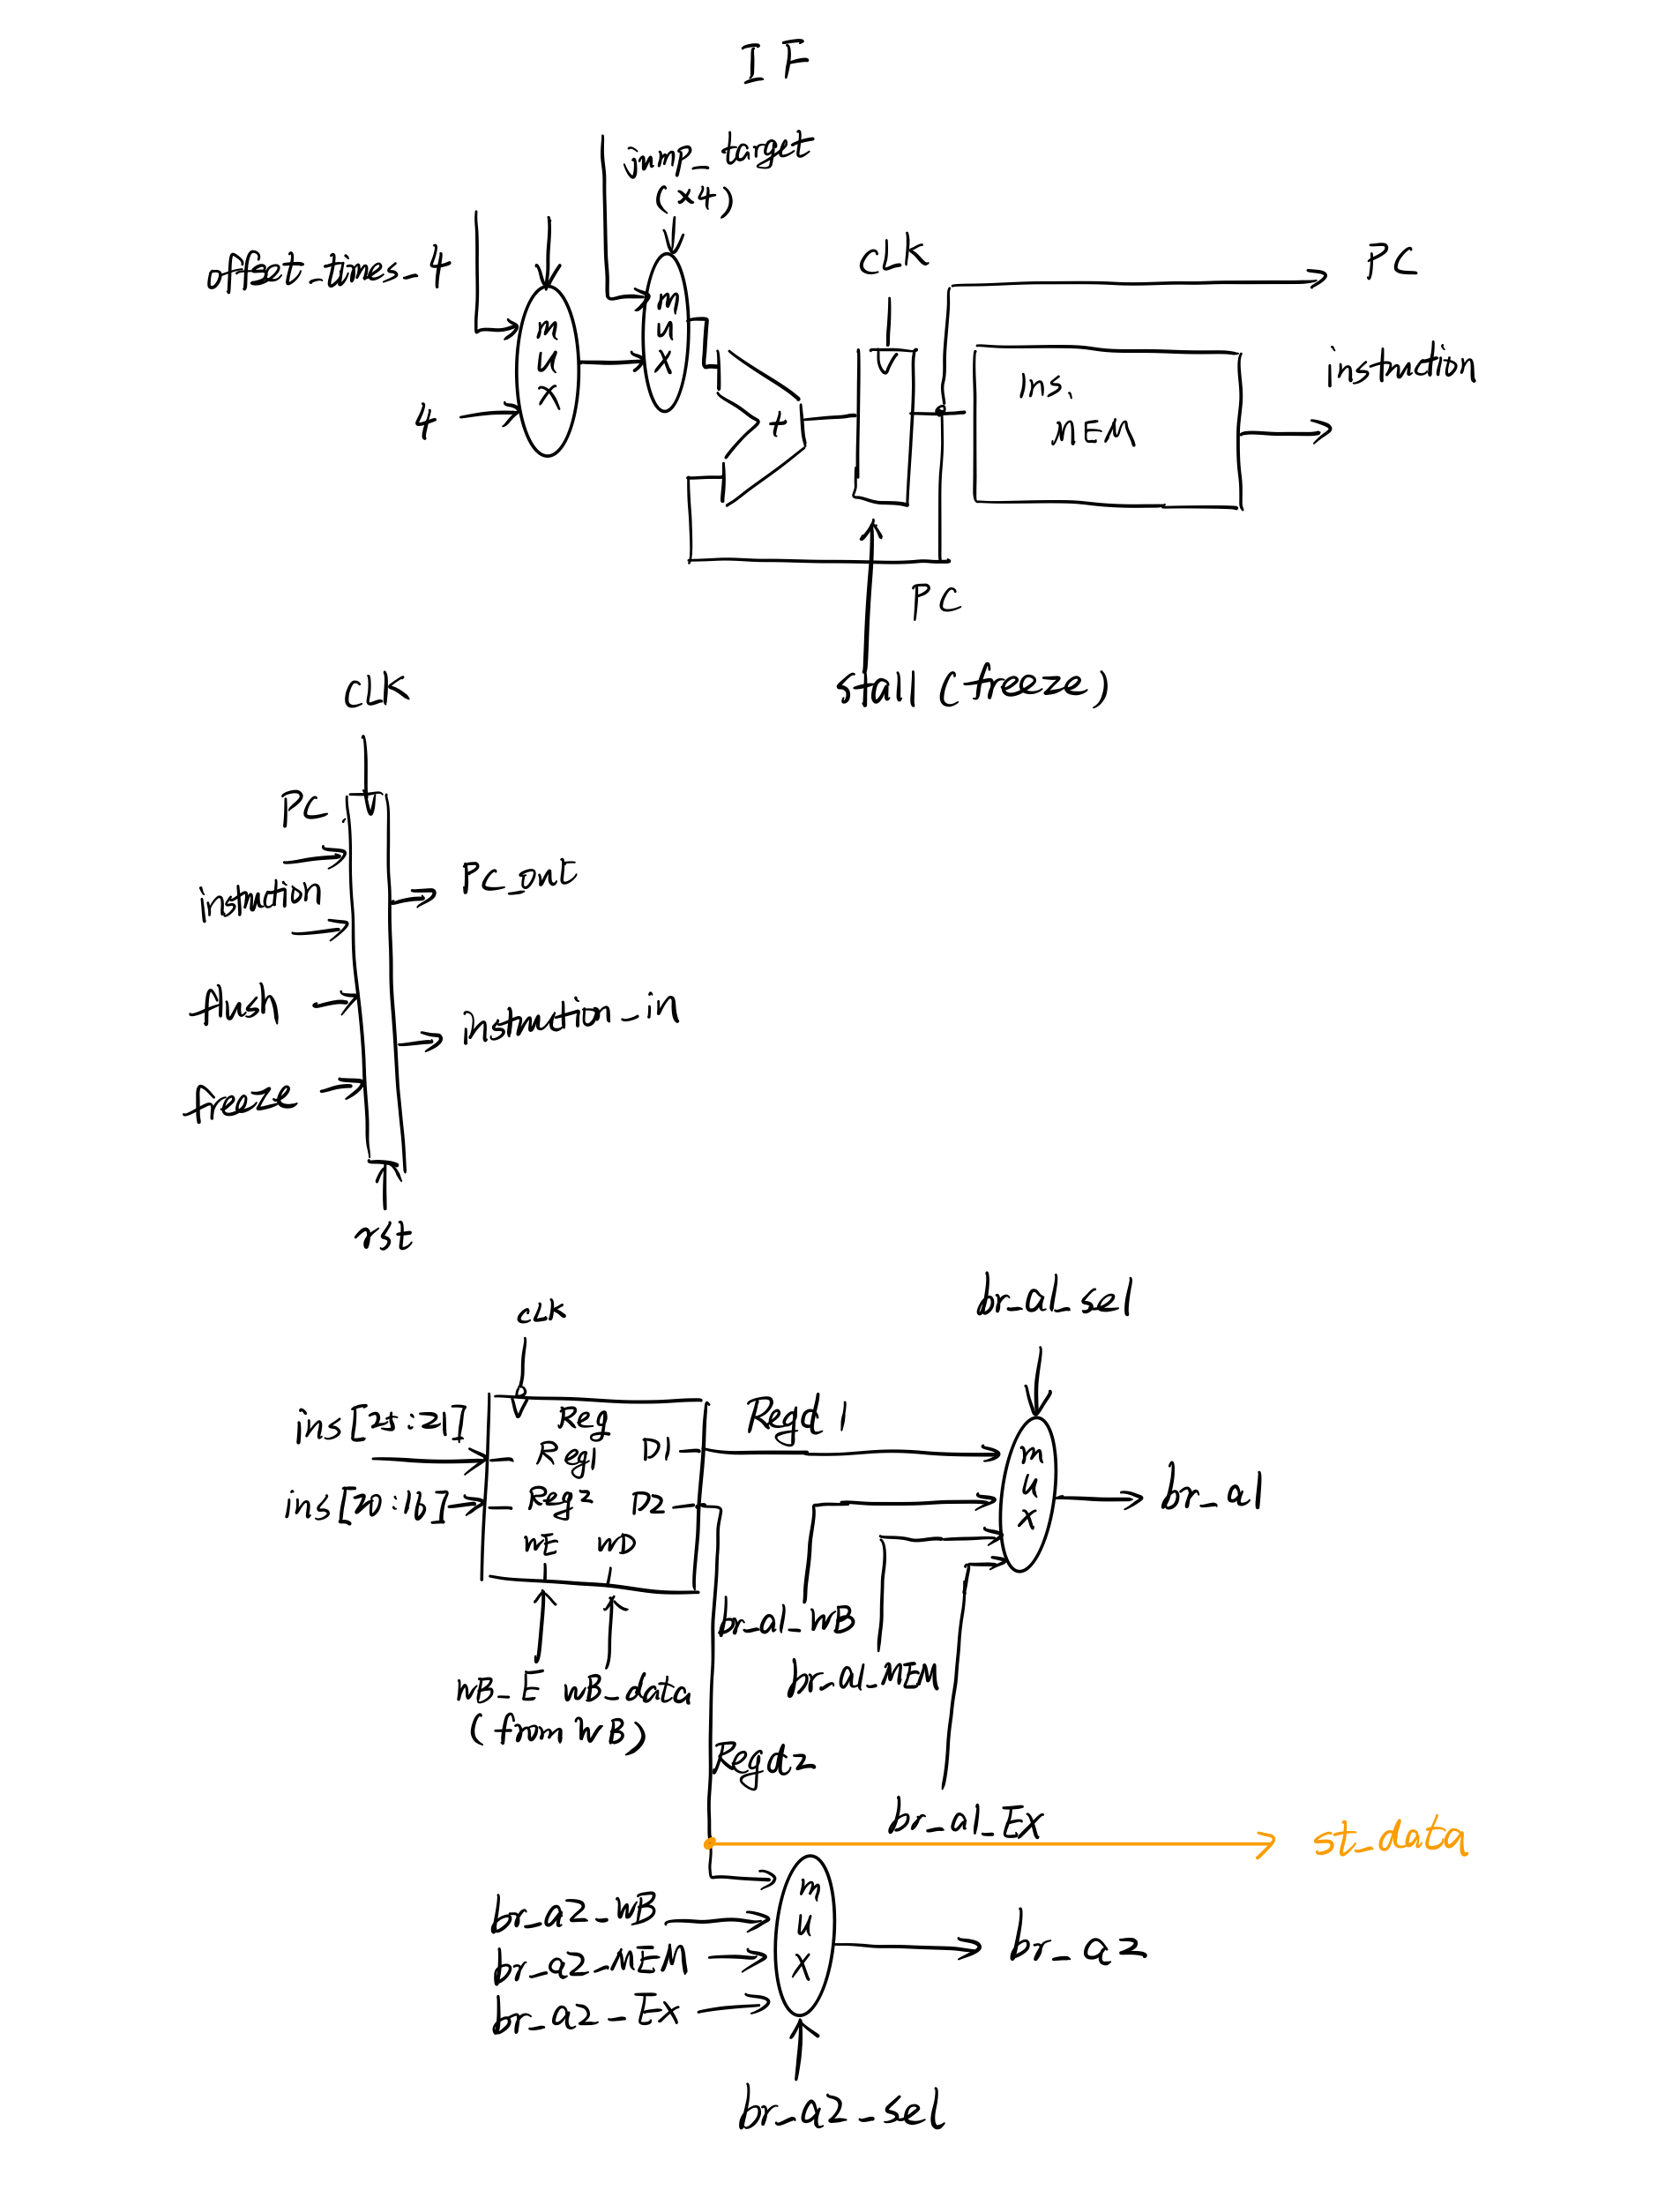 IF
jump_target
(×4)
offset_times_4
mux
mux
4
+
CLK
PC
ins.
MEM
instruction
PC
stall (freeze)
CLK
PC
instruction
flush
freeze
rst
PC_out
instruction_in
CLK
ins[25:21]
ins[20:16]
Reg
Reg1
Reg2
D1
D2
WE WD
WB_E WB_data
(from WB)
Regd1
br_a1_sel
mux
br_a1
br_a1_WB
br_a1_MEM
br_a1_EX
Regd2
st_data
br_a2_WB
br_a2_MEM
br_a2_EX
mux
br_a2
br_a2_sel